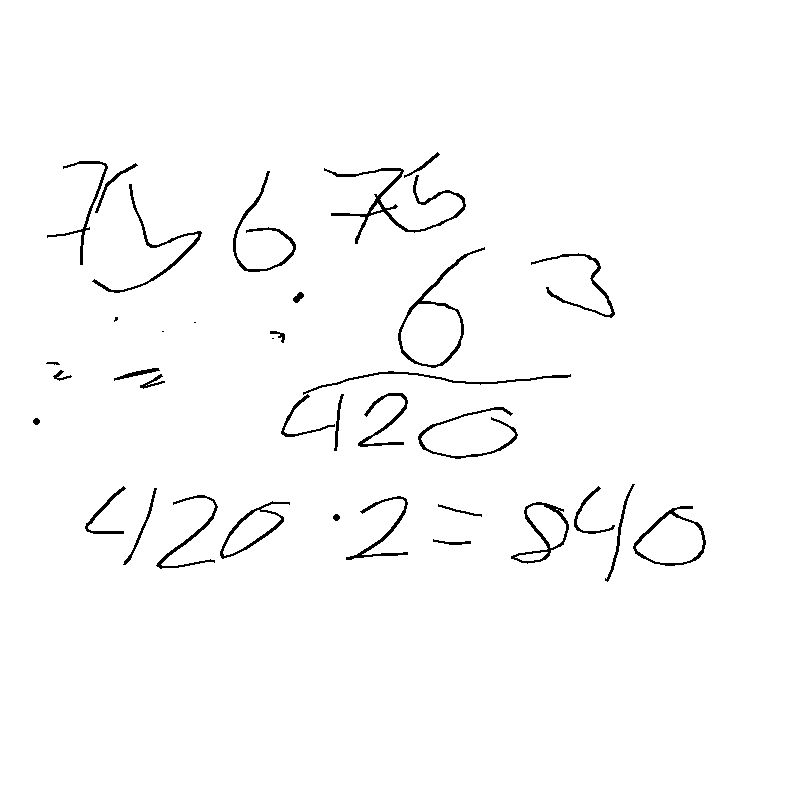 75 6 75
6 3
420
420 · 2 = 840